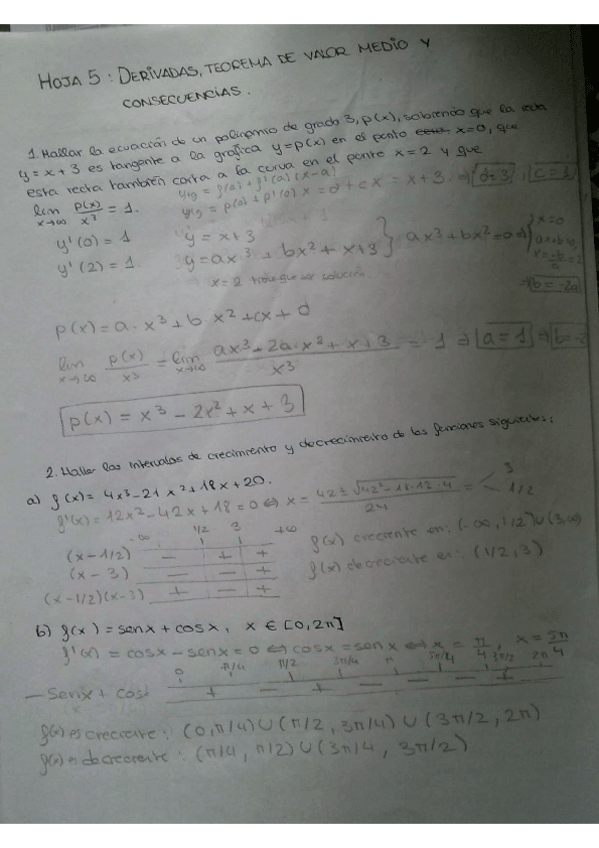 HOJA 5 : DERIVADAS, TEOREMA DE VALOR MEDIO Y
CONSECUENCIAS.
1. Hallar la ecuación de un polinomio de grado 3, p(x), sabiendo que la recta
y = x + 3 es tangente a la grafica y = p(x) en el punto x = 0, que
esta recta también corta a la curva en el punto x = 2 y que
lim x→∞ p(x)/x³ = 1.
ytg = f(a) + f'(a)(x-a)
ytg = p(0) + p'(0) x = d + cx = x + 3 ⇒ d=3, c=1
y'(0) = 1
y'(2) = 1
y = x + 3
y = ax³ + bx² + x + 3 } ax³ + bx² = 0 ⇒ { x=0
ax+b=0
x = -b/a = 2
x = 2 tiene que ser solución
⇒ b = -2a
p(x) = a · x³ + b x² + cx + d
lim x→∞ p(x)/x³ = lim x→∞ (ax³ - 2a·x² + x + 3)/x³ = 1 ⇒ a = 1 ⇒ b = -2
p(x) = x³ - 2x² + x + 3
2. Hallar los intervalos de crecimiento y decrecimiento de las funciones siguientes:
a) f(x) = 4x³ - 21x² + 18x + 20.
f'(x) = 12x² - 42x + 18 = 0 ⇔ x = (42 ± √(42² - 18·12·4))/24 = 3
1/2
-∞ 1/2 3 +∞
(x - 1/2) - + +
(x - 3) - - +
(x - 1/2)(x - 3) + - +
f(x) creciente en: (-∞, 1/2) ∪ (3, ∞)
f(x) decreciente en: (1/2, 3)
b) f(x) = senx + cosx, x ∈ [0, 2π]
f'(x) = cosx - senx = 0 ⇔ cosx = senx ⇔ x = π/4, x = 5π/4
0 π/4 π/2 3π/4 π 5π/4 3π/2 2π
- senx + cosx + - - + - - +
f(x) es creciente: (0, π/4) ∪ (π/2, 3π/4) ∪ (3π/2, 2π)
f(x) es decreciente: (π/4, π/2) ∪ (3π/4, 3π/2)